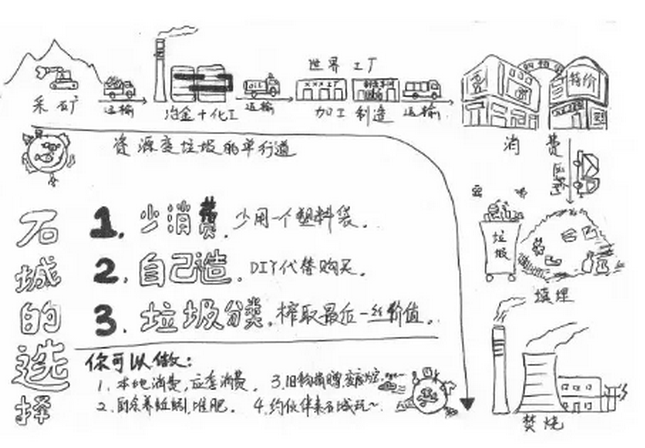 世界工厂
采矿
运输
冶金+化工
OIL
运输
加工制造
运输
特价
消费
资源变垃圾的单行道
垃圾
填埋
焚烧
石城的选择
1. 少消费. 少用一个塑料袋.
2. 自己造. DIY代替购买.
3. 垃圾分类. 榨取最后一丝价值.
你可以做:
1. 本地消费, 应季消费.
2. 厨余养蚯蚓, 堆肥.
3. 旧物捐赠,
4. 约伙伴来石城玩~